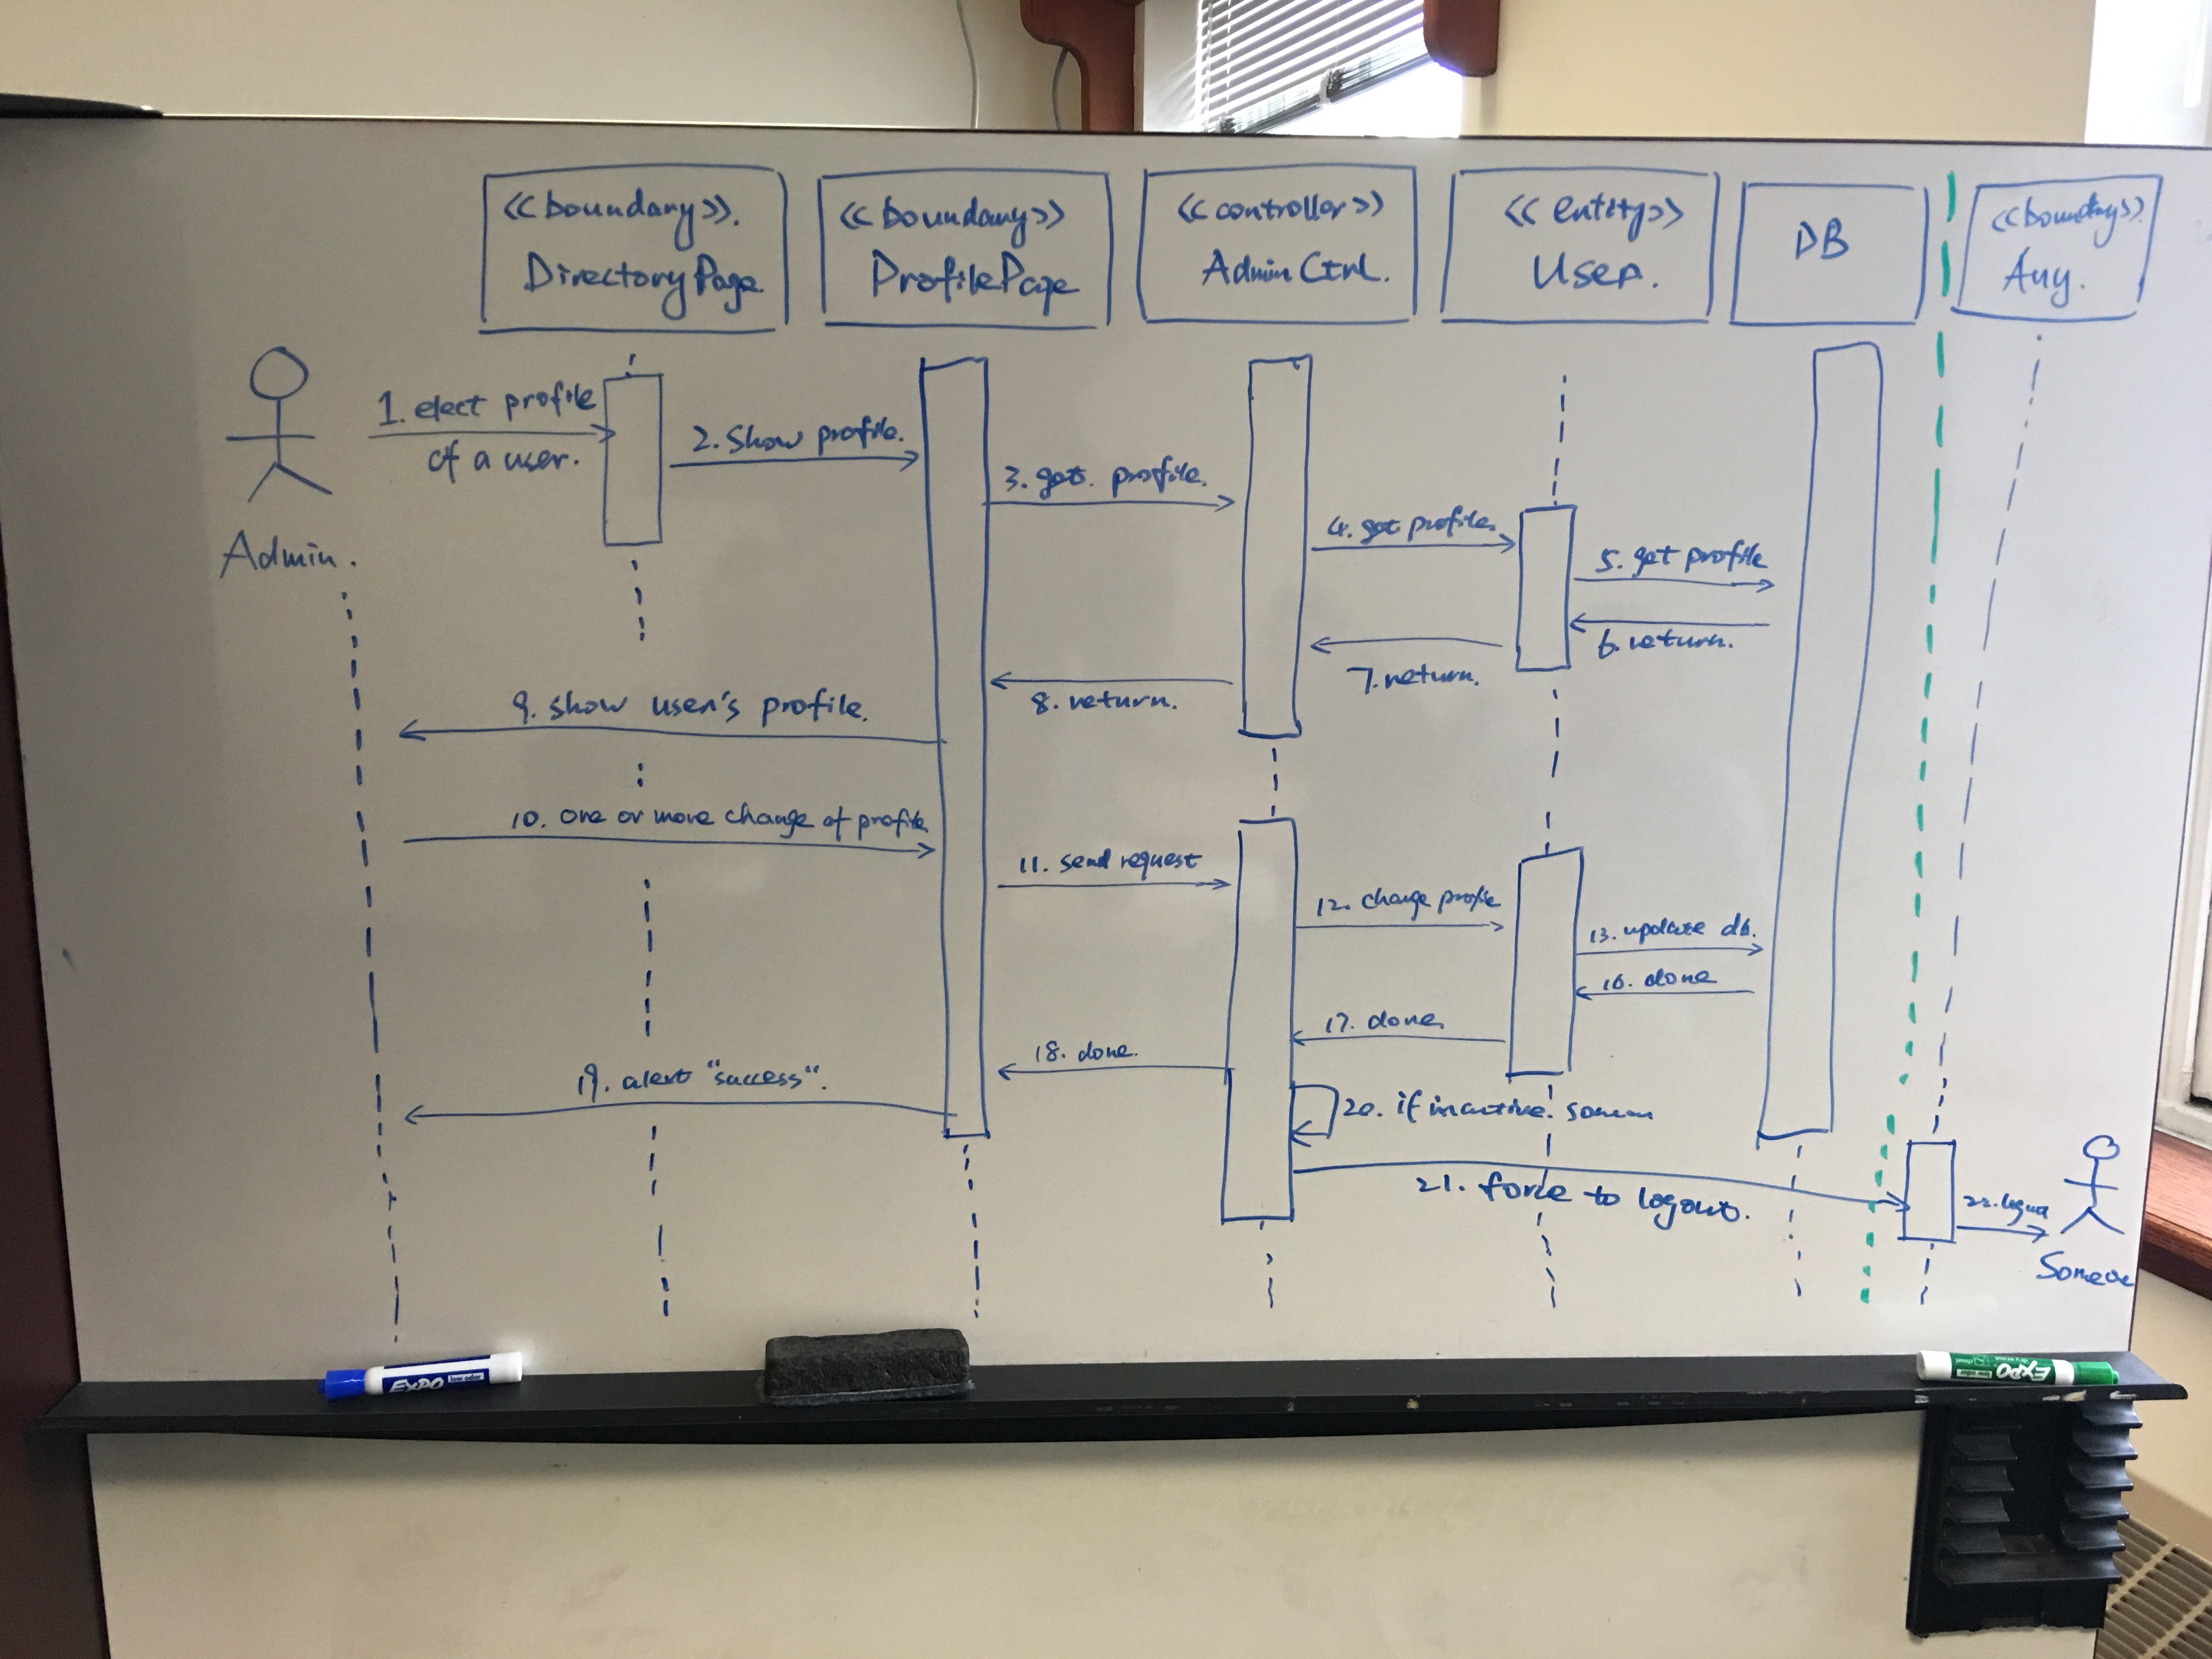 <<boundary>>.
DirectoryPage
<<boundary>>
ProfilePage
<<controller>>
AdminCtrl.
<<entity>>
User.
DB
<<boundary>>
Any.
1. elect profile
of a user.
Admin.
2. Show profile.
3. get profile.
4. get profile.
5. get profile
6. return.
7. return.
8. return.
9. show user's profile.
10. one or more change of profile
11. send request
12. change profile
13. update db.
16. done
17. done.
18. done.
19. alert "success".
20. if inactive
21. force to logout.
22.
EXPO low odor
EXPO low odor